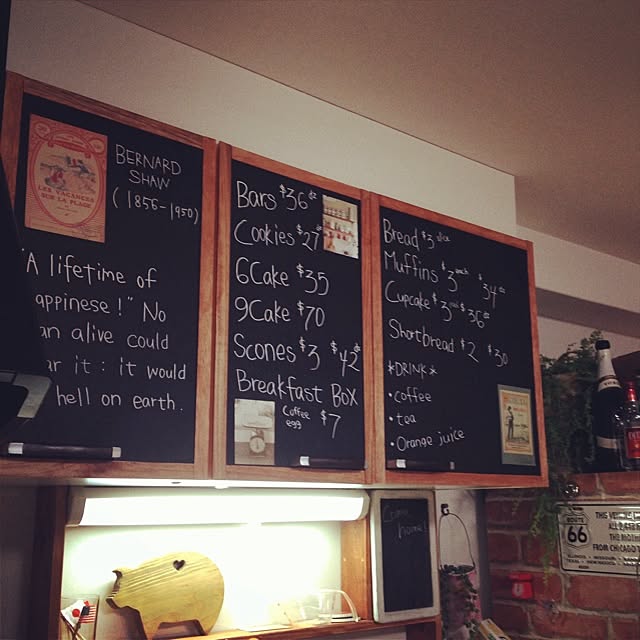 LES VACANCES
SUR LA PLAGE
BERNARD
SHAW
(1856-1950)
"A lifetime of
appinese!" No
an alive could
ar it : it would
hell on earth.
Bars $36 dz
Cookies $27 dz
6Cake $35
9Cake $70
Scones $3 $42 dz
Breakfast BOX
Coffee
egg $7
Bread $3 slice
Muffins $3 each $34 dz
Cupcake $3 $36 dz
Shortbread $2 $30
*DRINK*
•coffee
•tea
•Orange juice
Come
home!
ROUTE
66
THIS
THE MOTHER
FROM CHICAGO